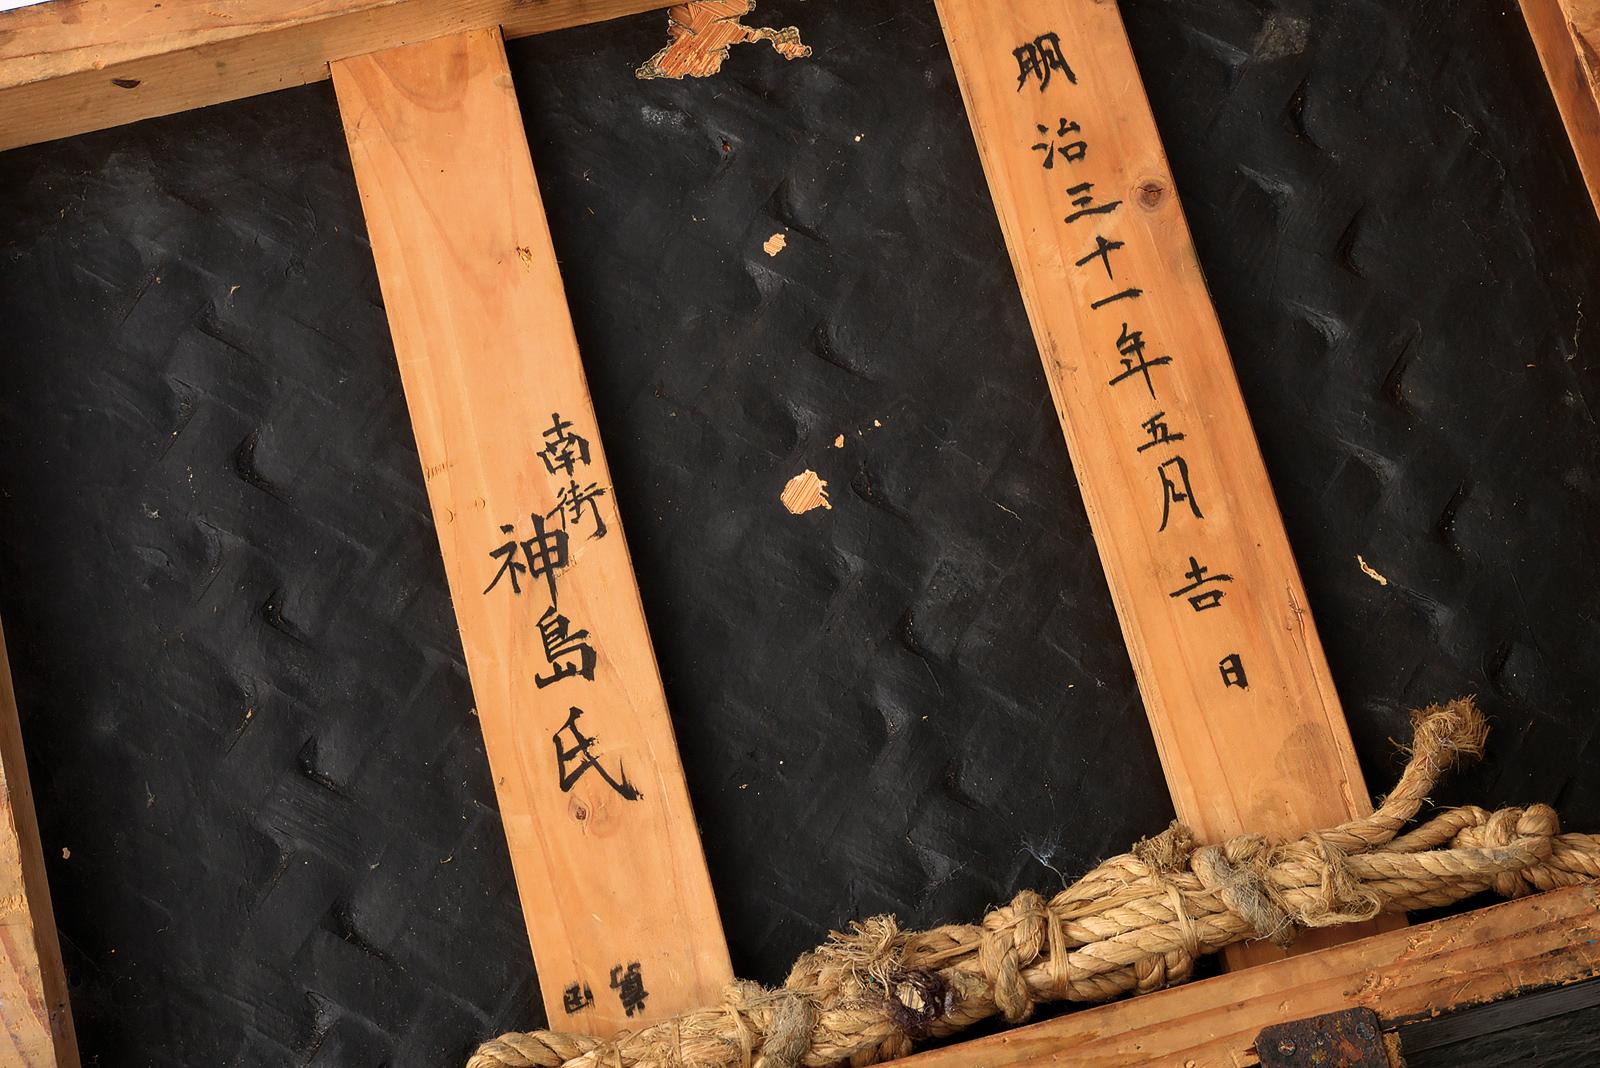 明治三十一年五月吉日
南街
神島氏